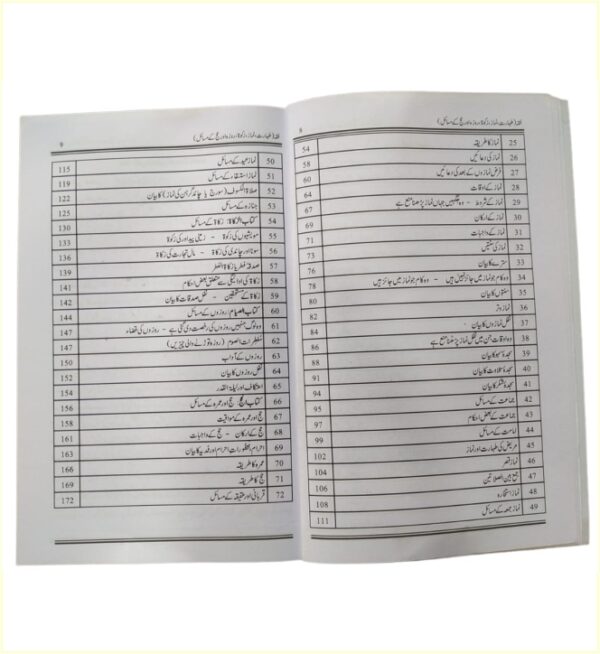 فقہ (طہارت، نماز، زکوٰۃ، روزہ اور حج کے مسائل) 8
25 نماز کا طریقہ 54
26 نماز کی دعائیں 58
27 فرض نمازوں کے بعد کی دعائیں 60
28 نماز کے اوقات 64
29 نماز کے شروط - وہ جگہیں جہاں نماز پڑھنا منع ہے 67
30 نماز کے ارکان 71
31 نماز کے واجبات 73
32 نماز کی سنتیں 76
33 سترے کا بیان 78
34 وہ کام جو نماز میں جائز نہیں ہیں - وہ کام جو نماز میں جائز ہیں 78
35 سنتوں کا بیان 82
36 نماز وتر 82
37 نفل نمازوں کا بیان - 86
38 وہ اوقات جن میں نفل نماز پڑھنا منع ہے 86
39 سجدۂ سہو کا بیان 88
40 سجدۂ تلاوت کا بیان 90
41 سجدۂ شکر کا بیان 91
42 جماعت کے مسائل 92
43 جماعت کے بعض احکام 95
44 امامت کے مسائل 99
45 مریض کی طہارت اور نماز 102
46 نماز قصر 104
47 جمع بین الصلاتین 106
48 نماز استخارہ 108
49 نماز جمعہ کے مسائل 111
فقہ (طہارت، نماز، زکوٰۃ، روزہ اور حج کے مسائل) 9
50 نماز عید کے مسائل 115
51 نماز استسقاء کے مسائل 119
52 صلاۃ الکسوف (سورج یا چاند گرہن کی نماز) کا بیان 122
53 جنازہ کے مسائل 125
54 کتاب الزکاۃ: زکاۃ کے مسائل 130
55 مویشیوں کی زکوٰۃ - زمینی پیداور کی زکوٰۃ 133
56 سونا اور چاندی کی زکوٰۃ - مال تجارت کی زکوٰۃ 136
57 صدقۂ فطر یا زکاۃ الفطر 139
58 زکاۃ کی ادائیگی سے متعلق بعض احکام 141
59 زکاۃ کے مستحقین - نفل صدقات کا بیان 142
60 کتاب الصیام: روزوں کے مسائل 144
61 وہ لوگ جنہیں روزوں کی رخصت دی گئی ہے - روزوں کی قضاء 147
62 مفطرات الصوم (روزہ توڑنے والی چیزیں) 147
63 روزوں کے آداب 150
64 نفل روزوں کا بیان 152
65 اعتکاف اور لیلۃ القدر 154
66 کتاب الحج: حج اور عمرہ کے مسائل 156
67 حج اور عمرہ کے مواقیت 158
68 حج کے ارکان - حج کے واجبات 161
69 احرام، محظورات احرام اور فدیہ کا بیان 163
70 عمرہ کا طریقہ 166
71 حج کا طریقہ 169
72 قربانی اور عقیقہ کے مسائل 172